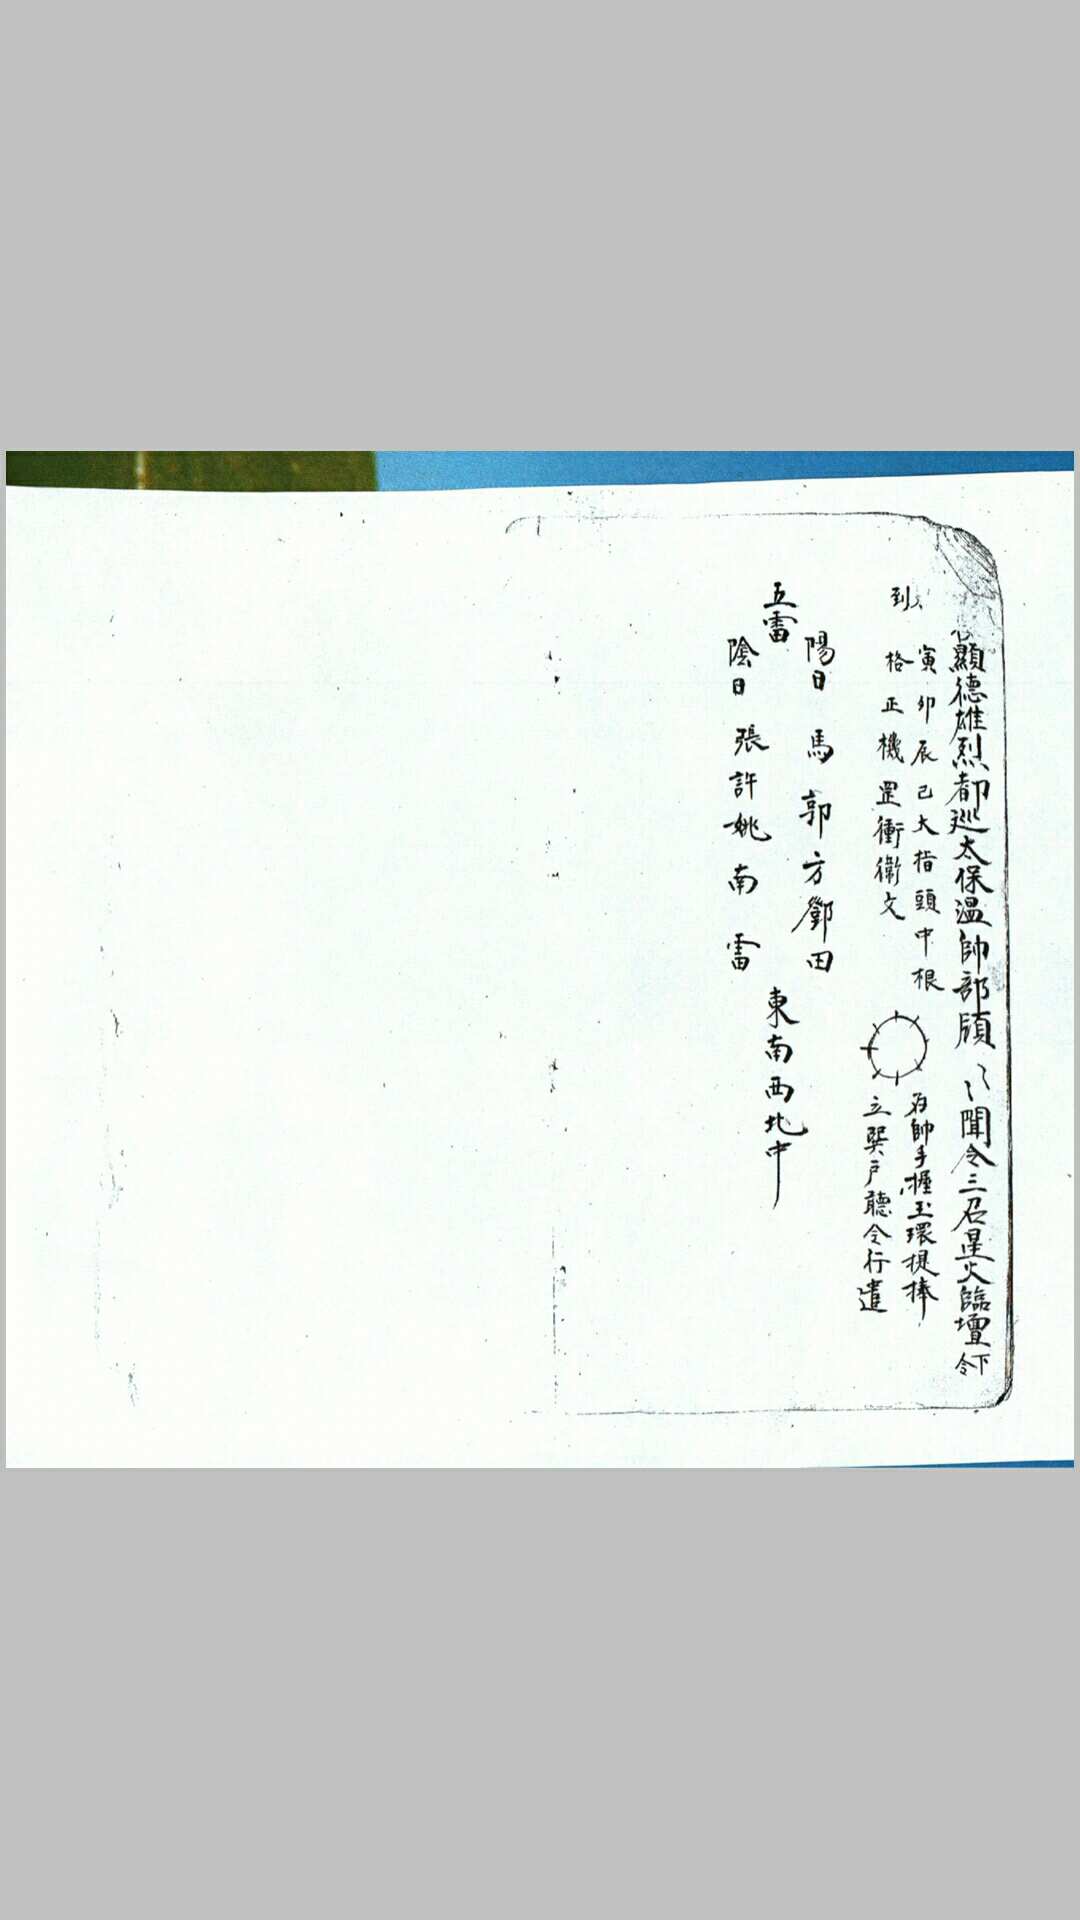 顯德雄烈都巡太保溫帥部 聞令三召星火臨壇 令下
到
寅卯辰巳大指頭中根
格正機罡衝衛文
右帥手握玉環提捧
立巽戶聽令行遣
五雷
陽日 馬 郭 方 鄧 田
陰日 張 許 姚 南 雷
東南西北中